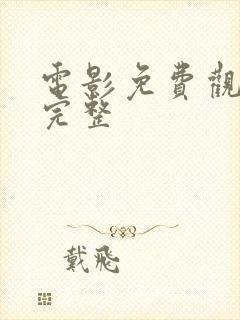 電影免費觀
完整
戴飛